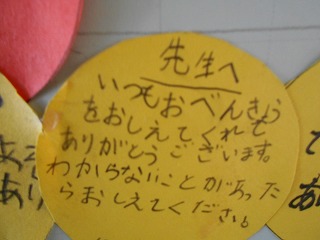 先生へ
いつもおべんきょう
をおしえてくれて
ありがとうございます。
わからないことがあった
らおしえてください。